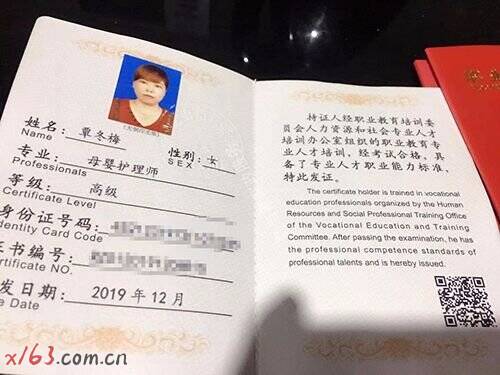 (无钢印无效)
姓名: 覃冬梅 性别: 女
Name SEX
专业: 母婴护理师
Professionals
等级: 高级
Certificate Level
身份证号码:
Identity Card Code
证书编号:
Certificate NO.
发日期: 2019年12月
e Date
持证人经职业教育培训委
员会人力资源和社会专业人才
培训办公室组织的职业教育专
业人才培训,经考试合格,具
备了专业人才职业能力标准,
特此发证。
The certificate holder is trained in vocational
education professionals organized by the Human
Resources and Social Professional Training Office
of the Vocational Education and Training
Committee. After passing the examination, he has
the professional competence standards of
professional talents and is hereby issued.
x163.com.cn